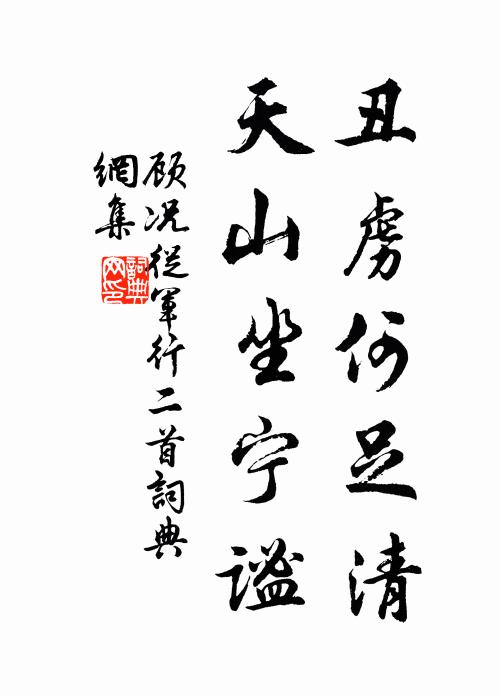 丑虏何足清
天山坐宁谧
顾况從軍行二首詞典
網集
詞典
网印